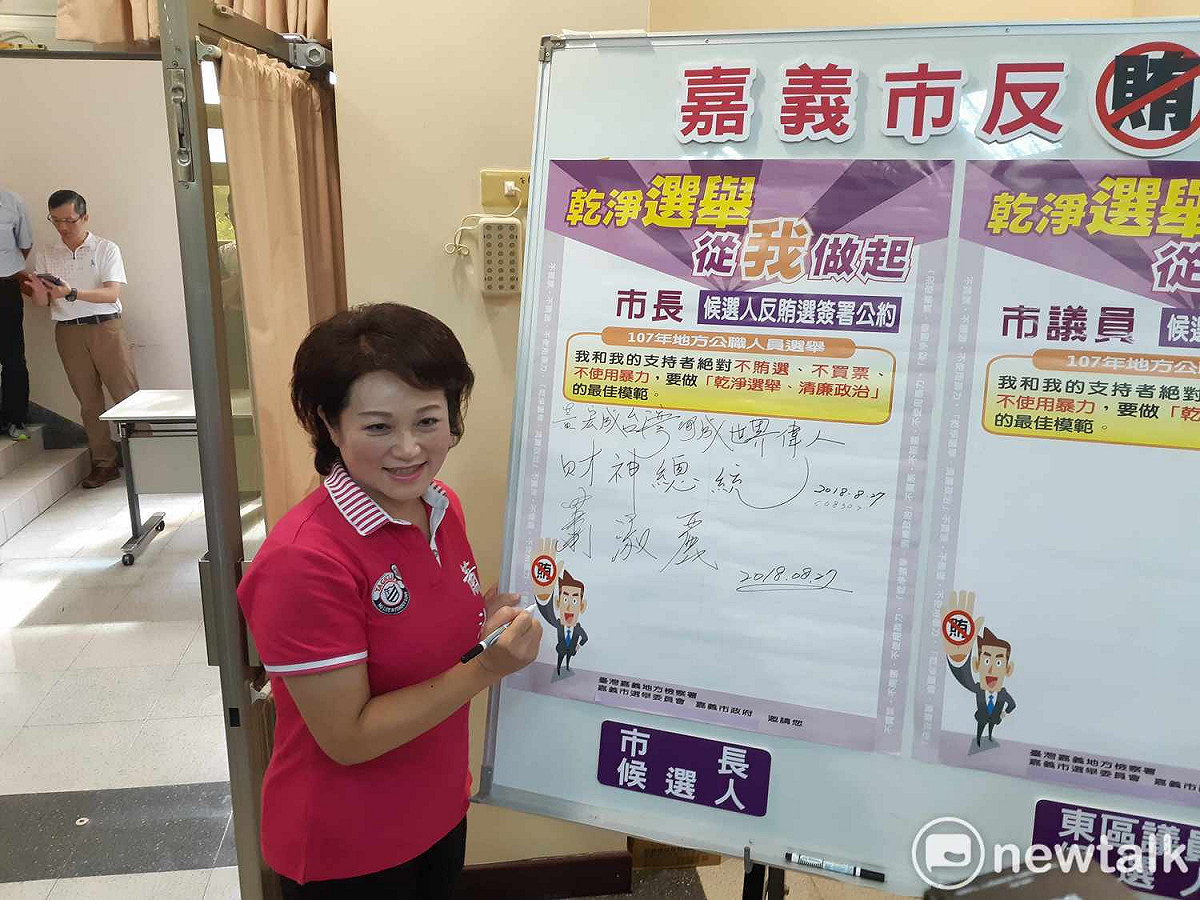 嘉義市反賄
乾淨選舉
從我做起
市長 候選人反賄選簽署公約
107年地方公職人員選舉
我和我的支持者絕對不賄選、不買票、
不使用暴力，要做「乾淨選舉、清廉政治」
的最佳模範。
黃宏成台灣阿成世界偉人
財神總統
2018.8.27
蕭淑麗
2018.08.27
賄
臺灣嘉義地方檢察署
嘉義市選舉委員會 嘉義市政府 邀請您
市長
候選人
乾淨選舉
從
市議員 候選
107年地方公
我和我的支持者絕對
不使用暴力，要做「乾
的最佳模範。
賄
臺灣嘉義地方檢察署
嘉義市選舉委員會 嘉義市
東區議員
選人
newtalk